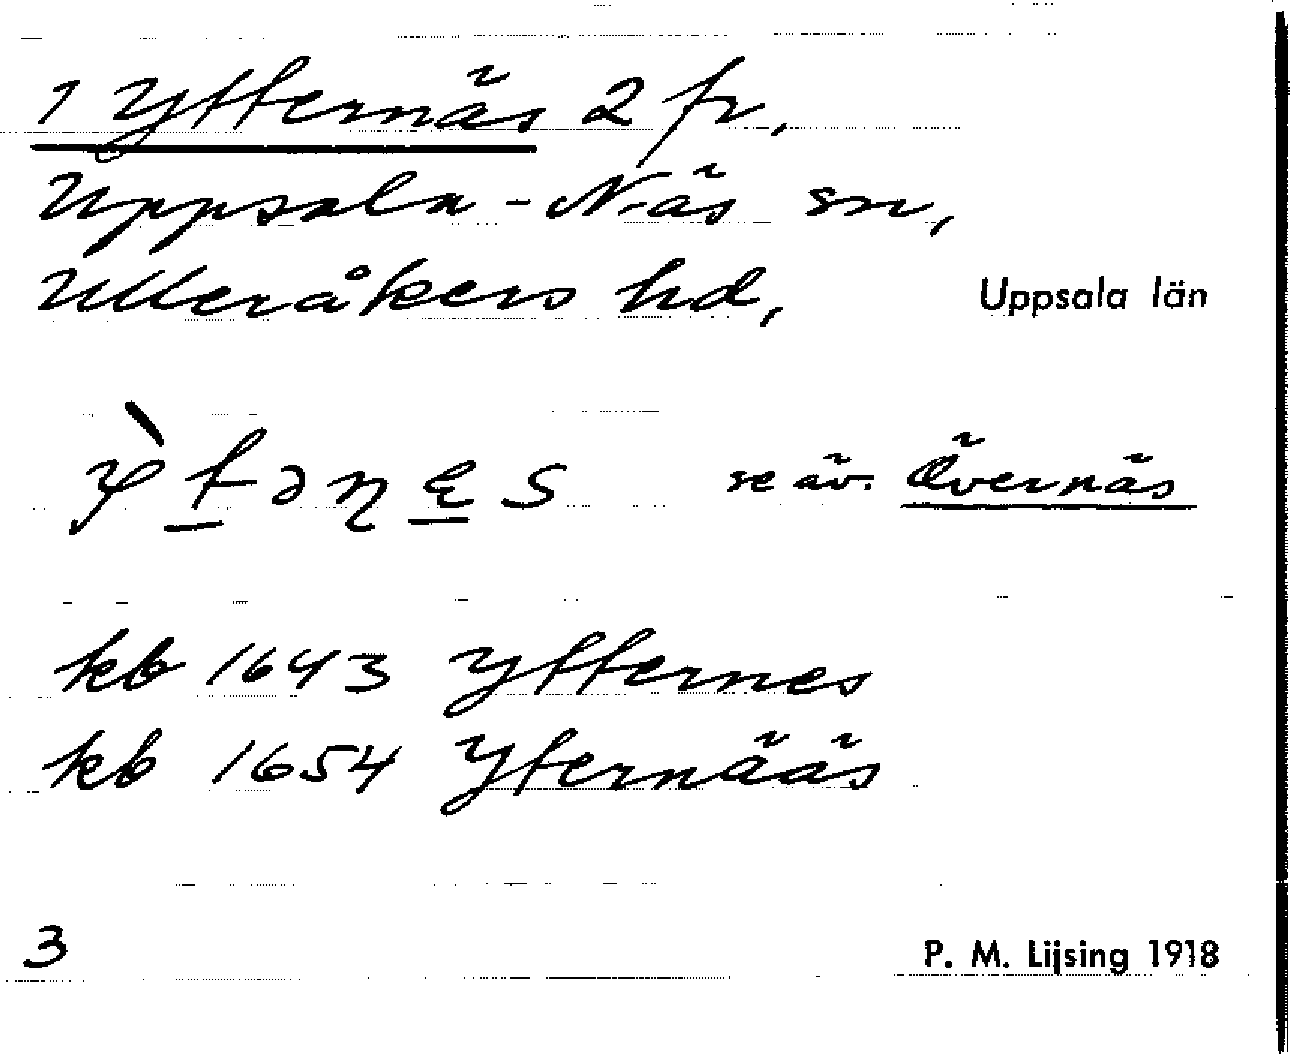 1 Ytternäs 2 fr,
Uppsala-Näs sn,
Ulleråkers hd, Uppsala län
se äv. Övernäs
kb 1643 Ytternes
kb 1654 Yternääs
3 P. M. Lijsing 1918